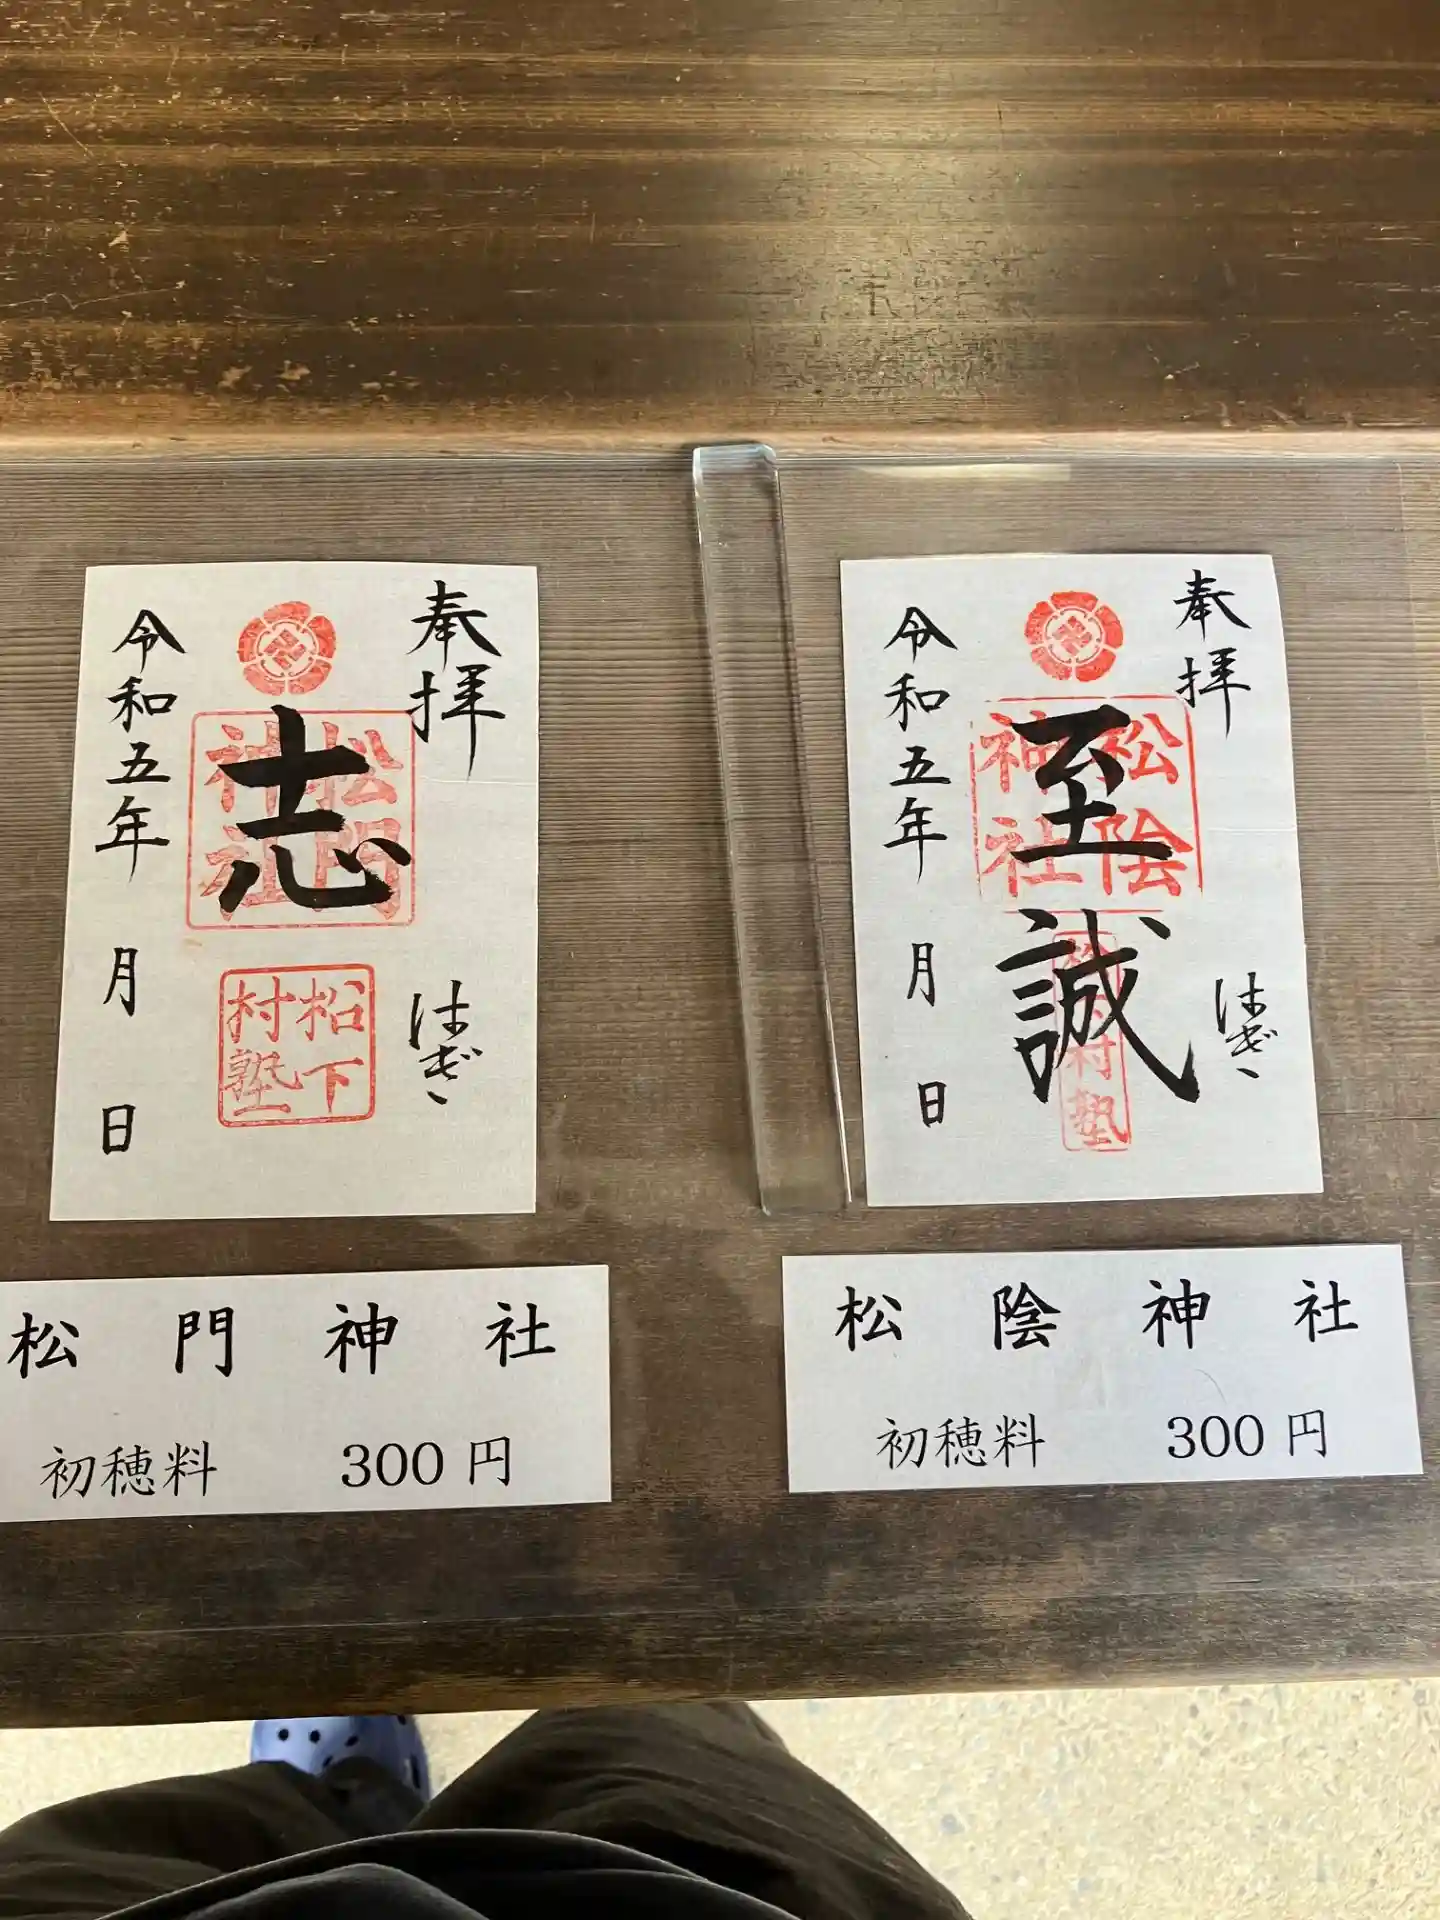 奉拝
志
松門神社
松下村塾
はぎ
令和五年 月 日
松門神社
初穂料 300円
奉拝
至誠
松陰神社
松下村塾
はぎ
令和五年 月 日
松陰神社
初穂料 300円